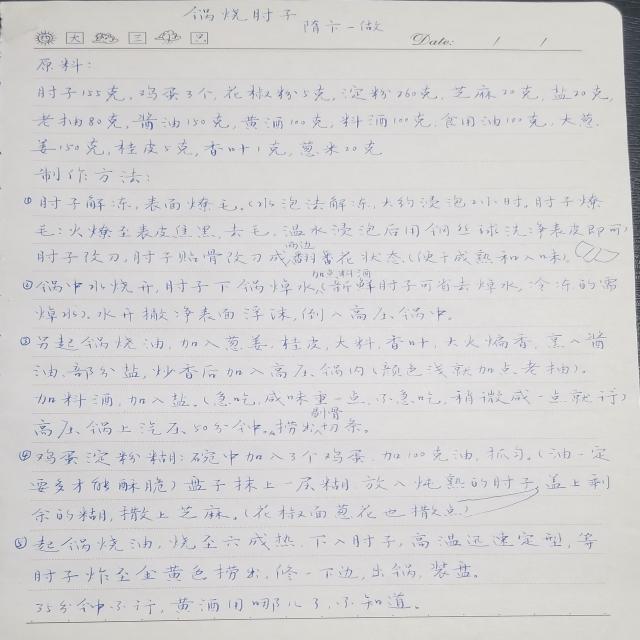 锅烧肘子 隋卞一做
大 三 Date: / /
原料:
肘子155克,鸡蛋3个,花椒粉5克,淀粉260克,芝麻20克,盐20克,
老抽80克,酱油150克,黄酒100克,料酒100克,食用油100克,大葱、
姜150克,桂皮5克,香叶1克,葱米20克
制作方法:
①肘子解冻,表面燎毛。(水泡法解冻,大约浸泡2小时。肘子燎
毛:火燎至表皮焦黑,去毛,温水浸泡后用钢丝球洗净表皮即可)
两边
肘子改刀,肘子贴骨改刀成翻花状态(便于成熟和入味)。
加点料酒
②锅中水烧开,肘子下锅焯水(新鲜肘子可省去焯水,冷冻的需
焯水)。水开撇净表面浮沫,倒入高压锅中。
③另起锅烧油,加入葱姜、桂皮、大料、香叶,大火煸香,烹入酱
油、部分盐,炒香后加入高压锅内(颜色浅就加点老抽)。
加料酒,加入盐。(急吃,咸味重一点,不急吃,稍微咸一点就行)
剔骨
高压锅上汽压50分钟。捞出切条。
④鸡蛋淀粉糊:碗中加入3个鸡蛋,加100克油,抓匀。(油一定
要多才能酥脆)盘子抹上一层糊,放入炖熟的肘子,盖上剩
余的糊,撒上芝麻。(花椒面葱花也撒点)
⑤起锅烧油,烧至六成热,下入肘子,高温迅速定型,等
肘子炸至金黄色捞出,修一下边,出锅,装盘。
35分钟不行,黄酒用哪儿了,不知道。